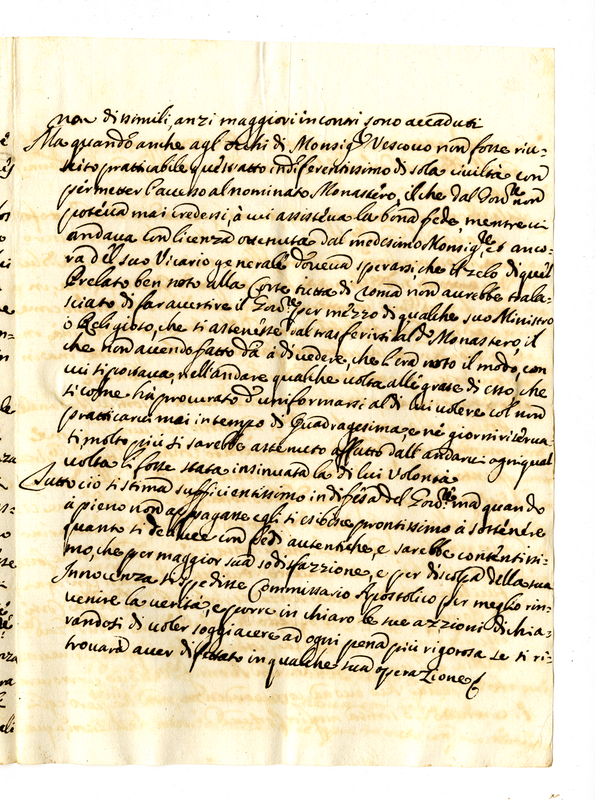 non dissimili, anzi maggiori incontri sono accaduti
Ma quando anche agl'occhi di Monsig.r Vescovo non fosse riu-
scito pratticabile questratto indiferentissimo di sola civiltà con
permetter l'accesso al nominato Monastero, il che dal Gov.re non
poteva mai credersi, à cui assisteva la bona fede, mentre vi
andava con licenza ottenuta dal medesimo Monsig.re, et anco-
ra del suo Vicario generale doveva sperarsi, che il zelo di quel
Prelato ben noto alla Corte tutta di Roma non avrebbe trala-
sciato di far avertire il Gov.re per mezzo di qualche suo Ministro
ò Religioso, che si astenesse dal trasferirsi al d.o Monastero, il
che non avendo fatto dà à divedere, che l'era noto il modo, con
cui si portava, nell'andare qualche volta alle grate di esso, che
si come hà procurato d'uniformarsi al di lui volere col non
pratticarvi mai in tempo di Quadragesima, e nè giorni riserva-
ti, molto più si sarebbe astenuto affatto dall'andarvi ogniqual
volta li fosse stata insinuata la di lui volontà
Tutto ciò si stima sufficientissimo in difesa del Gov.re mà quando
à pieno non appagasse egli si esibisce prontissimo à sostenere
quanto si deduce con fedi autentiche, e sarebbe contentissi-
mo, che per maggior sua sodisfazzione, e per discolpa della sua
Innocenza si spedisse Commissario Apostolico per meglio rin-
venire la verità, e porre in chiaro le sue azzioni dichia-
randosi di voler soggiacere ad ogni pena più rigorosa se si ri-
trovarà aver in qualche sua operazione